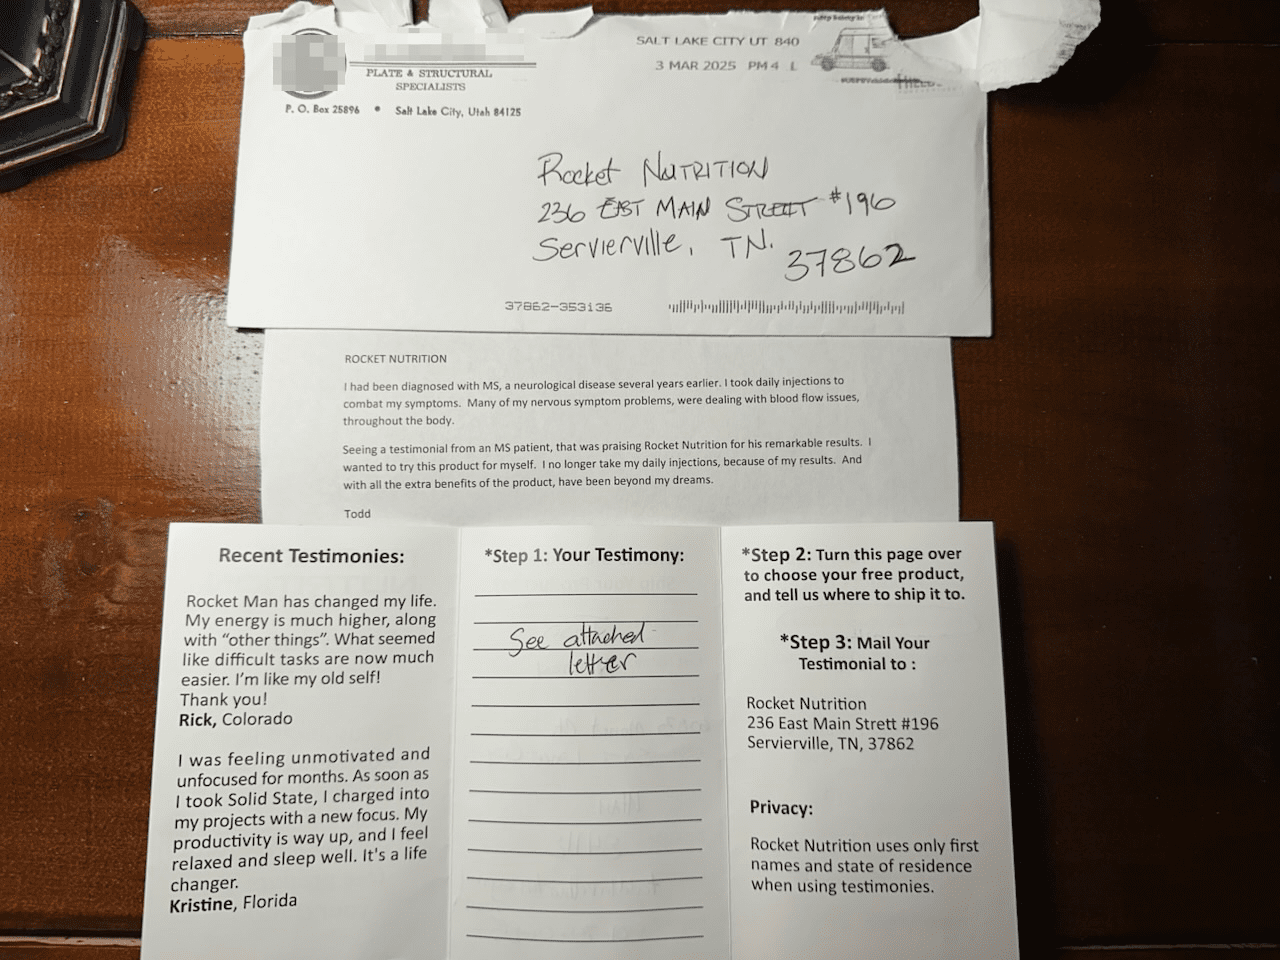 PLATE & STRUCTURAL
SPECIALISTS
P. O. Box 25896 • Salt Lake City, Utah 84125
SALT LAKE CITY UT 840
3 MAR 2025 PM 4 L
Rocket NUTRITION
236 EAST MAIN STREET #196
Servierville, TN.
37862
37862-353136
ROCKET NUTRITION
I had been diagnosed with MS, a neurological disease several years earlier. I took daily injections to
combat my symptoms. Many of my nervous symptom problems, were dealing with blood flow issues,
throughout the body.
Seeing a testimonial from an MS patient, that was praising Rocket Nutrition for his remarkable results. I
wanted to try this product for myself. I no longer take my daily injections, because of my results. And
with all the extra benefits of the product, have been beyond my dreams.
Todd
Recent Testimonies:
Rocket Man has changed my life.
My energy is much higher, along
with “other things”. What seemed
like difficult tasks are now much
easier. I’m like my old self!
Thank you!
Rick, Colorado
I was feeling unmotivated and
unfocused for months. As soon as
I took Solid State, I charged into
my projects with a new focus. My
productivity is way up, and I feel
relaxed and sleep well. It's a life
changer.
Kristine, Florida
*Step 1: Your Testimony:
See attached
letter
*Step 2: Turn this page over
to choose your free product,
and tell us where to ship it to.
*Step 3: Mail Your
Testimonial to :
Rocket Nutrition
236 East Main Strett #196
Servierville, TN, 37862
Privacy:
Rocket Nutrition uses only first
names and state of residence
when using testimonies.